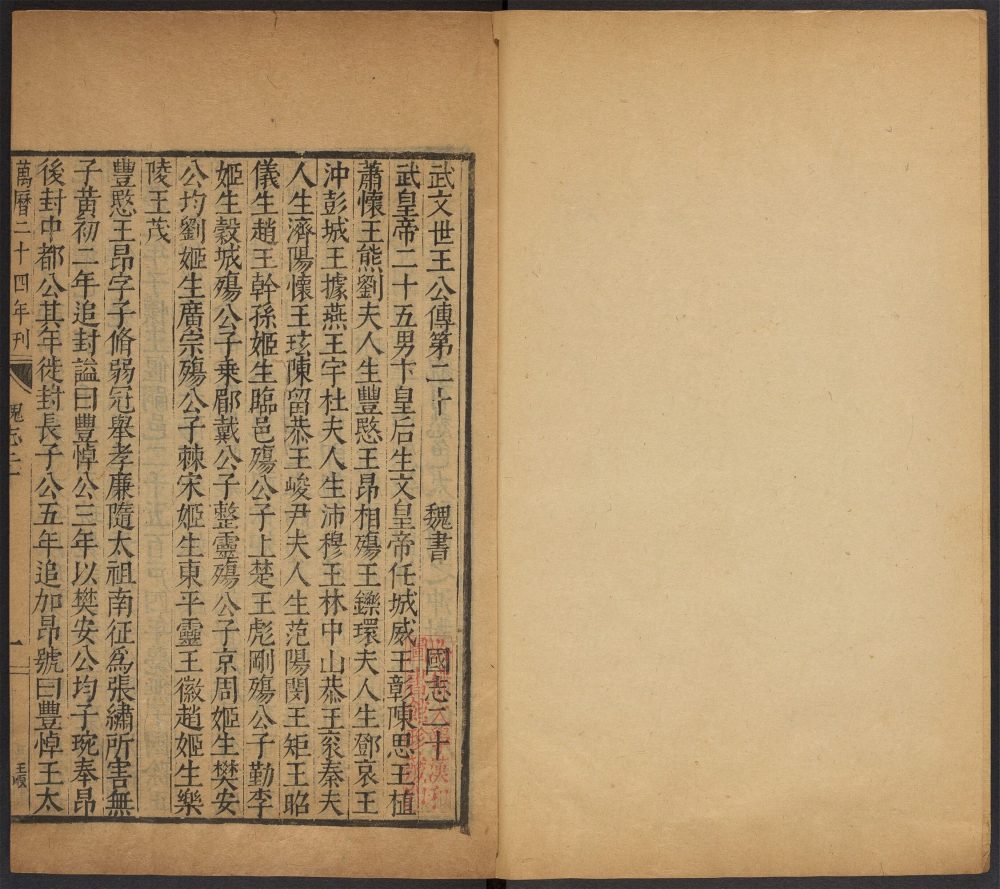 武文世王公傳第二十 魏書 國志二十
武皇帝二十五男卞皇后生文皇帝任城威王彰陳思王植
蕭懷王熊劉夫人生豐愍王昂相殤王鑠環夫人生鄧哀王
沖彭城王據燕王宇杜夫人生沛穆王林中山恭王袞秦夫
人生濟陽懷王玹陳留恭王峻尹夫人生范陽閔王矩王昭
儀生趙王幹孫姬生臨邑殤公子上楚王彪剛殤公子勤李
姬生榖城殤公子乗郿戴公子整靈殤公子京周姬生樊安
公均劉姬生廣宗殤公子棘宋姬生東平靈王徽趙姬生樂
陵王茂
豐愍王昂字子脩弱冠舉孝廉隨太祖南征爲張繡所害無
子黃初二年追封謚曰豐悼公三年以樊安公均子琬奉昂
後封中都公其年徙封長子公五年追加昂號曰豐悼王太
萬曆二十四年刊 魏志二十 一